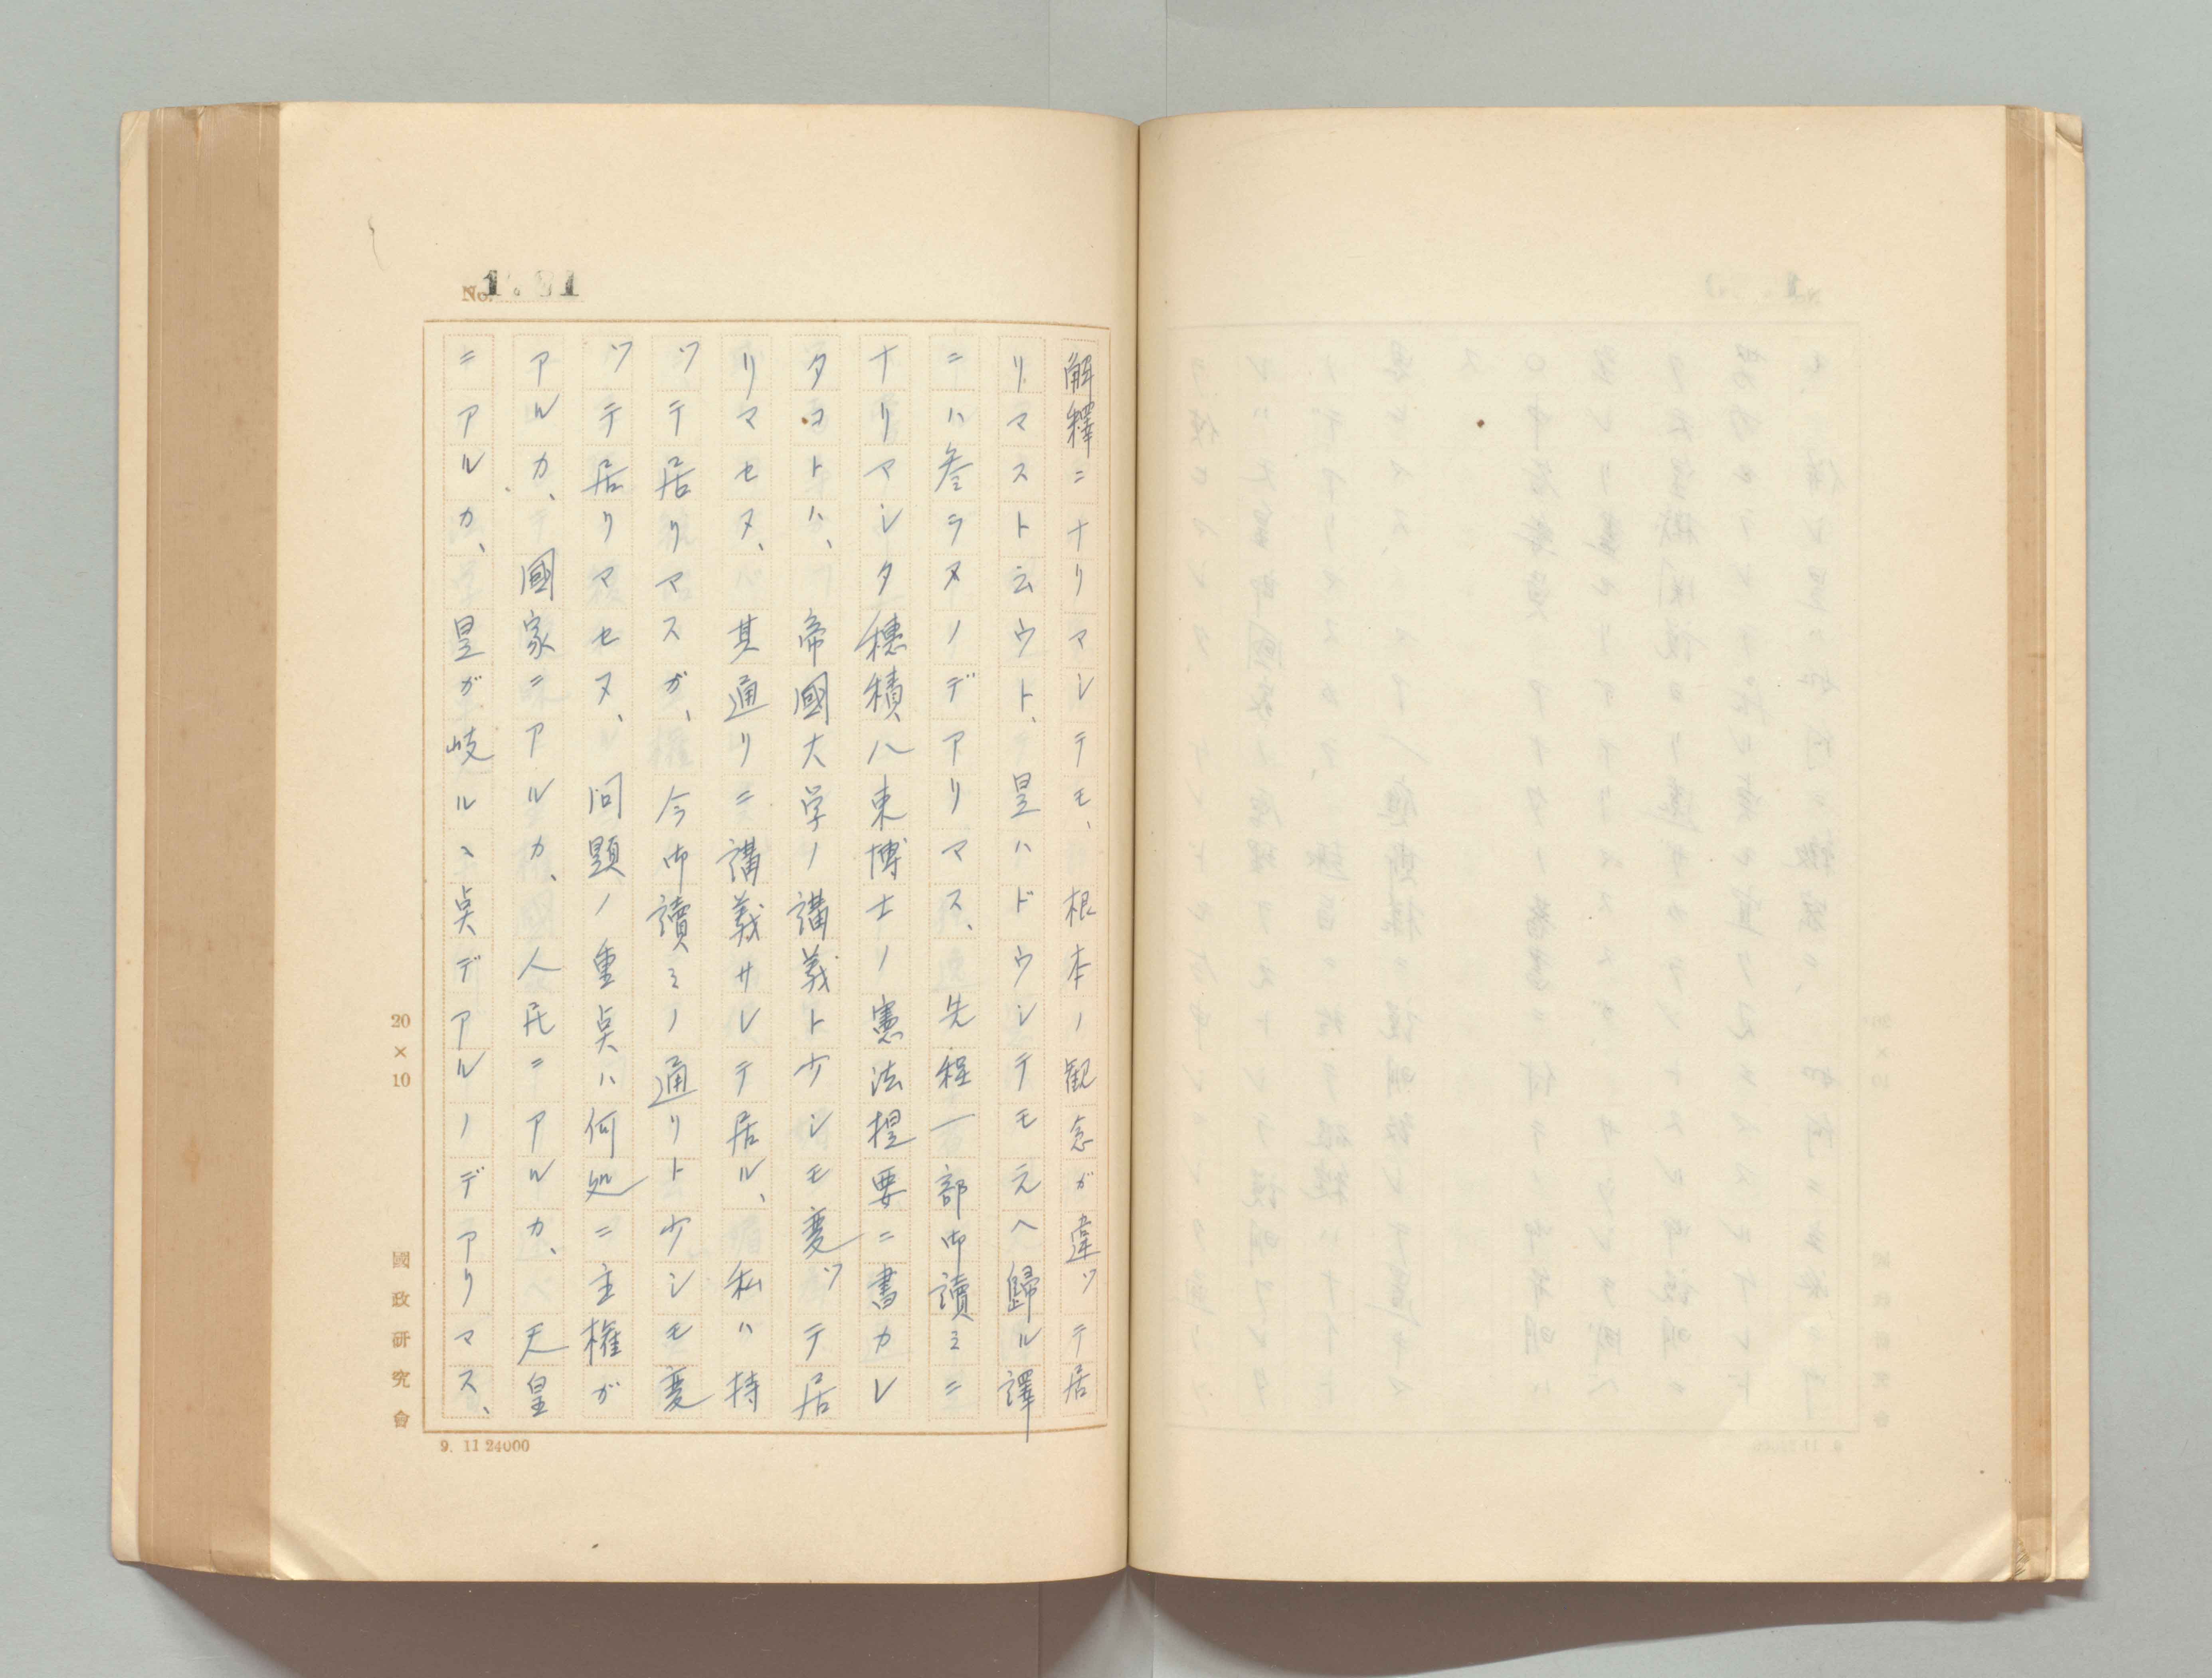 No.
解釋ニナリマシテモ、根本ノ観念ガ違ッテ居
リマスト云ウト、是ハドウシテモ元ヘ歸ル譯
ニハ参ラヌノデアリマス、先程一部御讀ミニ
ナリマシタ穗積八束博士ノ憲法提要ニ書カレ
タコトハ、帝國大学ノ講義ト少シモ変ッテ居
リマセヌ、其通リニ講義サレテ居ル、私ハ持
ッテ居リマスガ、今御讀ミノ通リト少シモ変
ッテ居リマセヌ、問題ノ重点ハ何処ニ主権ガ
アルカ、國家ニアルカ、人民ニアルカ、天皇
ニアルカ、是ガ岐ルヽ点デアルノデアリマス、
20×10
國政研究會
9. 11 24000